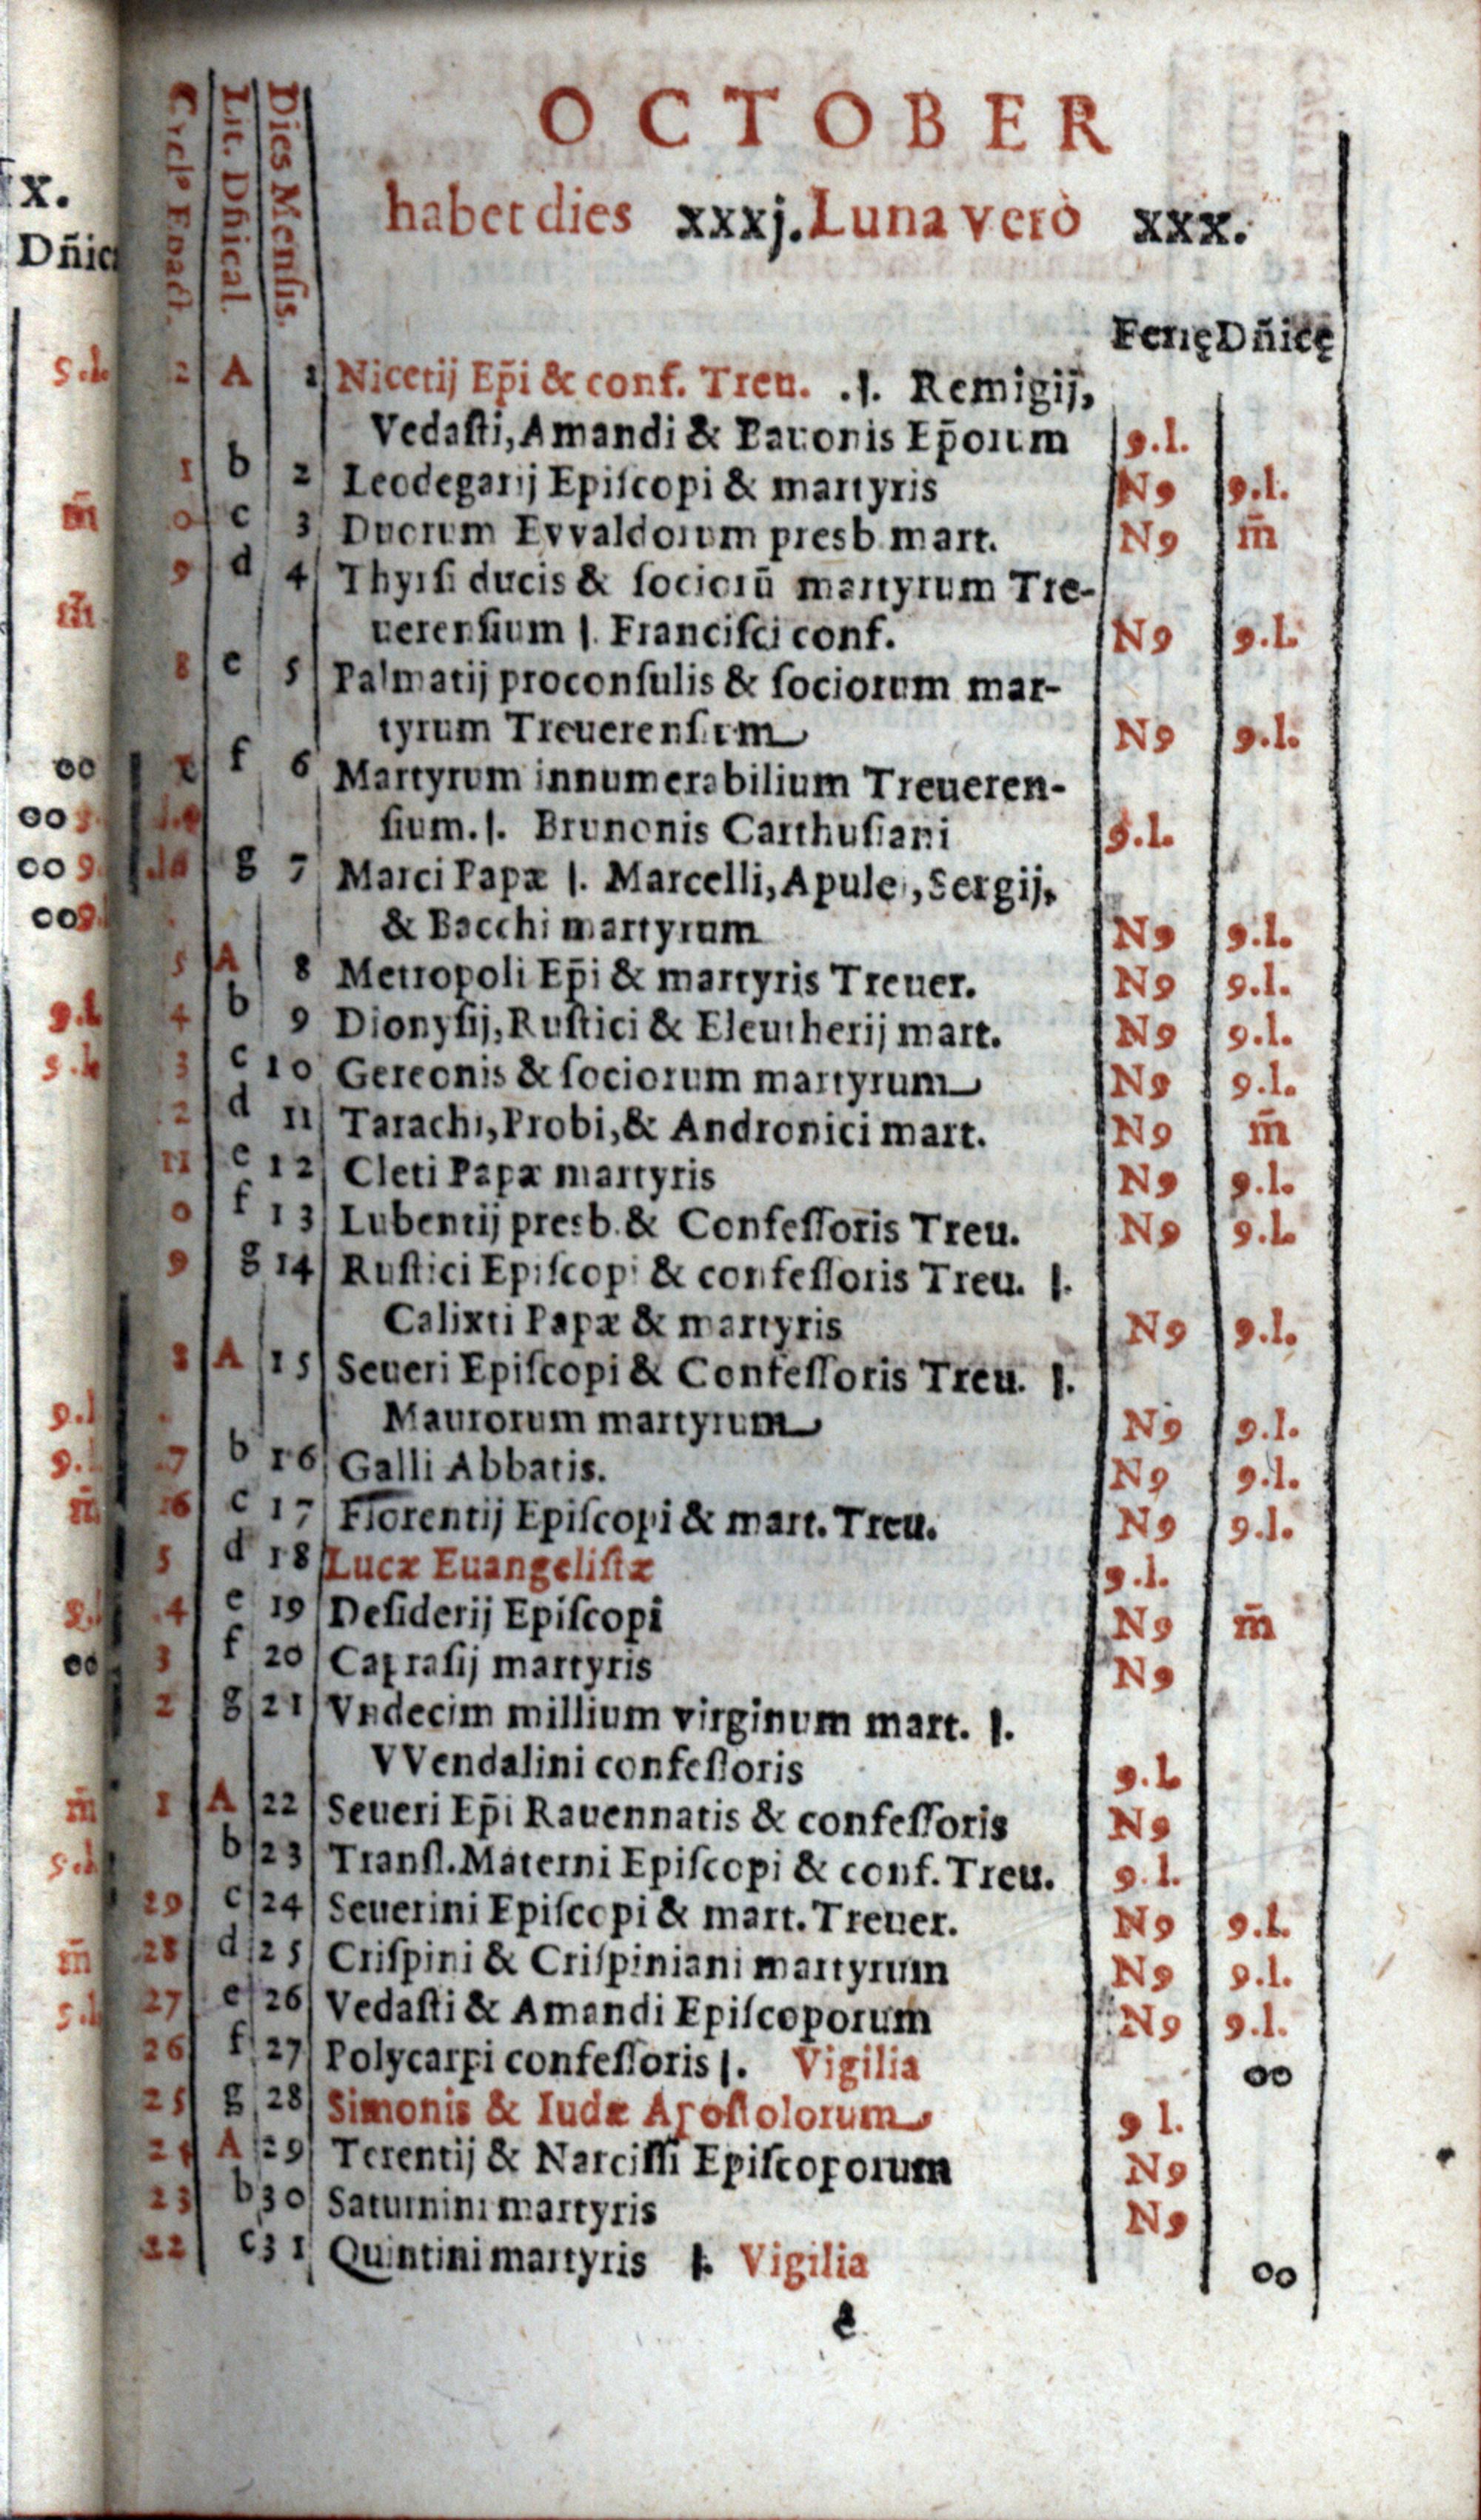 OCTOBER
habet dies xxxj. Luna verò xxx.
Dies Mensis.
Lit. Dñical.
Ferię Dñicę
2 A 1 Nicetij Ep̃i & conf. Treu. .|. Remigij,
Vedaſti, Amandi & Bauonis Ep̃orum 9.l.
1 b 2 Leodegarij Epiſcopi & martyris N9 9.l.
0 c 3 Duorum Evvaldorum presb. mart. N9 m̄
9 d 4 Thyrſi ducis & ſociorū martyrum Tre-
uerenſium |. Franciſci conf. N9 9.l.
8 e 5 Palmatij proconſulis & ſociorum mar-
tyrum Treuerenſium N9 9.l.
f 6 Martyrum innumerabilium Treueren-
ſium. |. Brunonis Carthuſiani 9.l.
g 7 Marci Papæ |. Marcelli, Apulei, Sergij,
& Bacchi martyrum N9 9.l.
5 A 8 Metropoli Ep̃i & martyris Treuer. N9 9.l.
4 b 9 Dionyſij, Ruſtici & Eleutherij mart. N9 9.l.
3 c 10 Gereonis & ſociorum martyrum N9 9.l.
2 d 11 Tarachi, Probi, & Andronici mart. N9 m̄
11 e 12 Cleti Papæ martyris N9 9.l.
0 f 13 Lubentij presb. & Confeſſoris Treu. N9 9.l.
9 g 14 Ruſtici Epiſcopi & confeſſoris Treu. |.
Calixti Papæ & martyris N9 9.l.
8 A 15 Seueri Epiſcopi & Confeſſoris Treu. |.
Maurorum martyrum N9 9.l.
7 b 16 Galli Abbatis. N9 9.l.
16 c 17 Florentij Epiſcopi & mart. Treu. N9 9.l.
5 d 18 Lucæ Euangeliſtæ 9.l.
4 e 19 Deſiderij Epiſcopi N9 m̄
3 f 20 Capraſij martyris N9
2 g 21 Vndecim millium virginum mart. |.
VVendalini confeſſoris 9.l.
1 A 22 Seueri Ep̃i Rauennatis & confeſſoris N9
b 23 Tranſl. Materni Epiſcopi & conf. Treu. 9.l.
29 c 24 Seuerini Epiſcopi & mart. Treuer. N9 9.l.
28 d 25 Criſpini & Criſpiniani martyrum N9 9.l.
27 e 26 Vedaſti & Amandi Epiſcoporum N9 9.l.
26 f 27 Polycarpi confeſſoris |. Vigilia oo
25 g 28 Simonis & Iudæ Apoſtolorum 9 l.
24 A 29 Terentij & Narciſſi Epiſcoporum N9
23 b 30 Saturnini martyris N9
22 c 31 Quintini martyris |. Vigilia oo
e